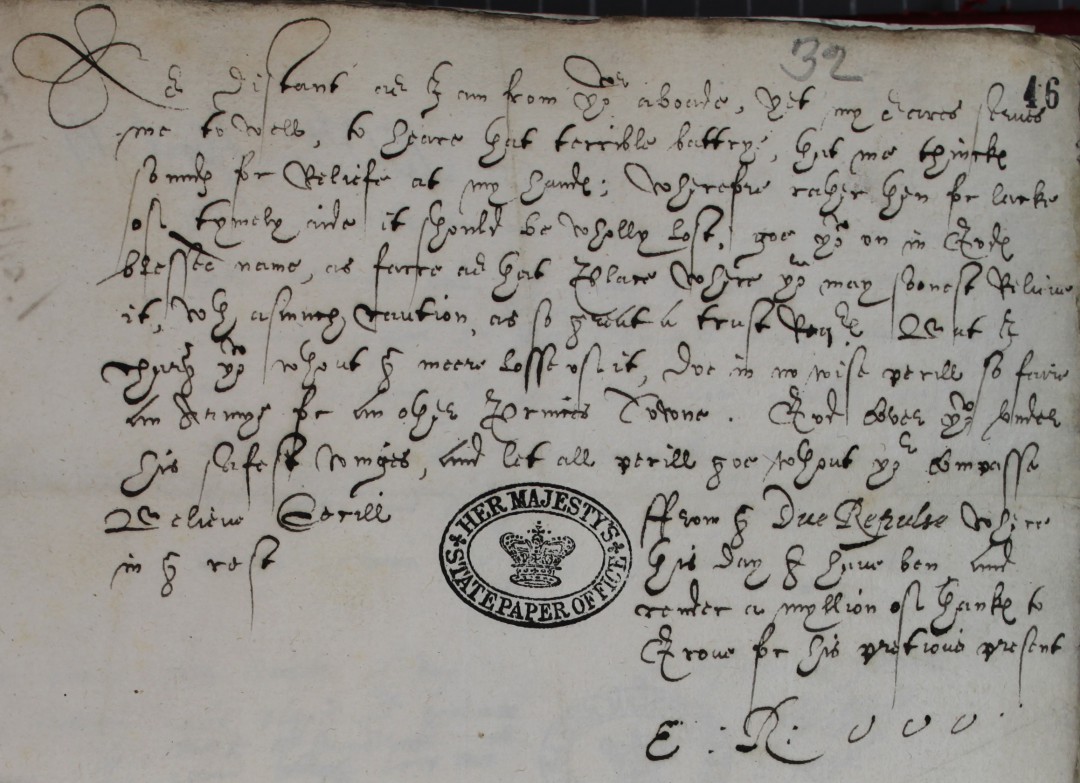 32
46
As distant as I am from yor aboade, yet my Eares serves
me to well, to heare that terrible battry, that me thincks
sounds for Reliefe at my hands; Wherefore rather then for lacke
of tymely aide it should be wholly lost, goe you on in Gods
blessed name, as farre as that Place Where you may soonest Relieve
it, wth asmuch Caution, as so great a trust Requirs But I
charg you wthout the meere losse of it, doe in no wise perill so faire
an Army for an other Princes Towne. God cover you under
his safest winges, and let all perill goe wthout yor Compasse
Believe Cecill
in the rest
ffrom the Due Repulse Where
this day I have ben and
render a myllion of thanks to
Grove for this pretious present
E : R :
HER MAJESTY'S
STATE PAPER OFFICE